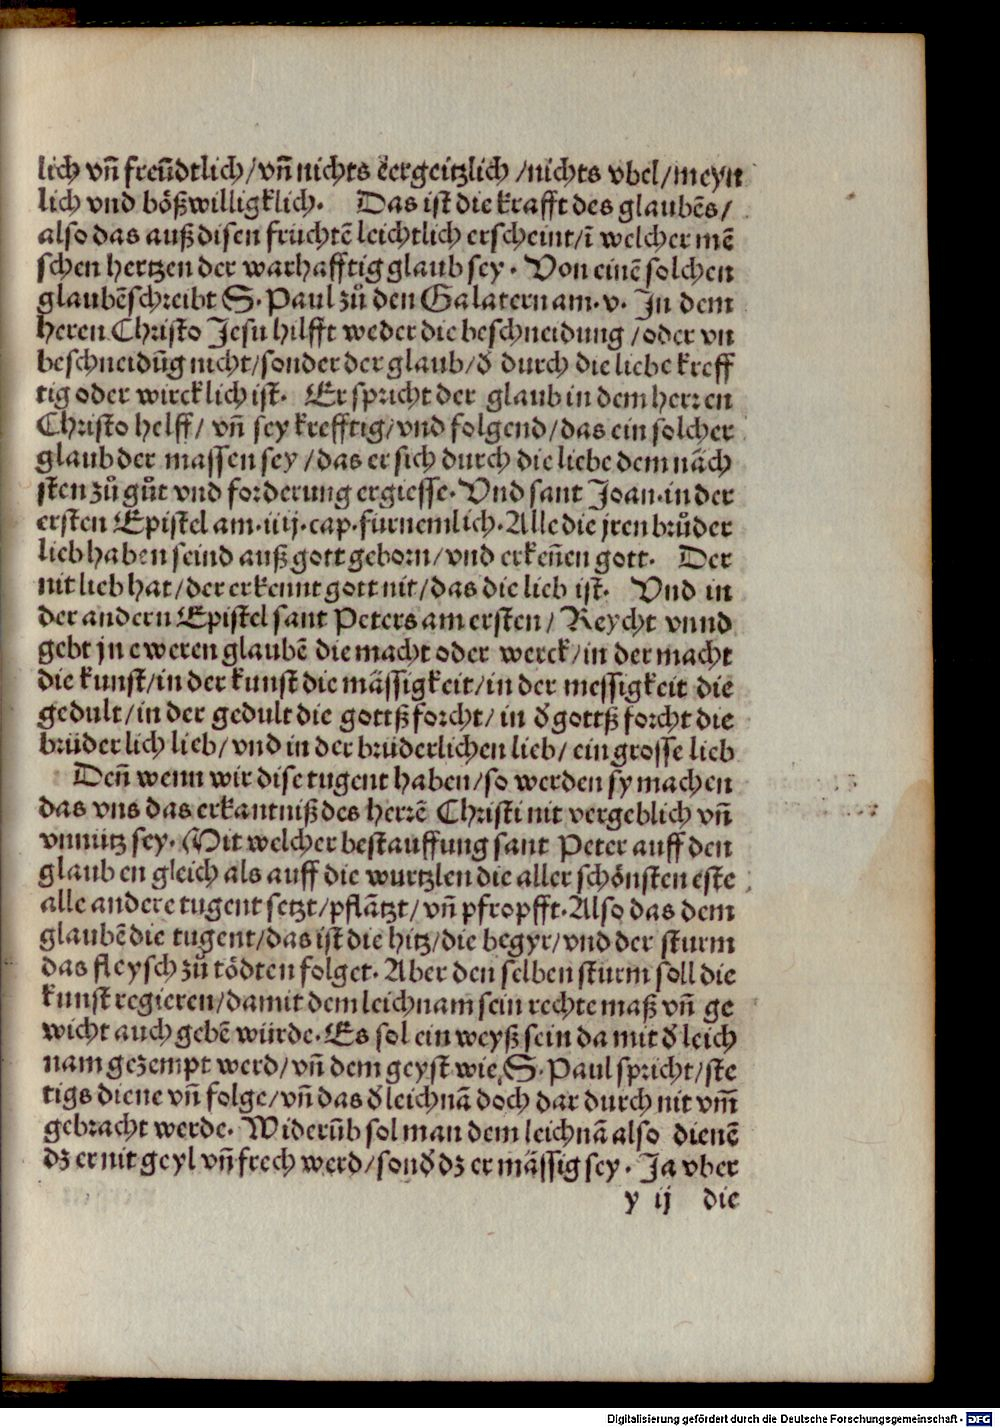 lich vñ freüdtlich/vñ nichts eergeitzlich/nichts vbel/meyn
lich vnd bößwilligklich. Das ist die krafft des glaubēs/
also das auß disen früchtē leichtlich erscheint/ī welcher mē
schen hertzen der warhafftig glaub sey. Von einē solchen
glaubē schreibt S. Paul zů den Galatern am. v. In dem
heren Christo Jesu hilfft weder die beschneidung/oder vn
beschneidūg nicht/sonder der glaub/ď durch die liebe kreff
tig oder wircklich ist. Er spricht der glaub in dem herren
Christo helff/ vñ sey krefftig/vnd folgend/das ein solcher
glaub der massen sey/das er sich durch die liebe dem näch
sten zů gůt vnd forderung ergiesse. Vnd sant Joan. in der
ersten Epistel am. iiij. cap. fürnemlich. Alle die jren brůder
lieb haben seind auß gott geborn/vnd erkeñen gott. Der
nit lieb hat/der erkennt gott nit/das die lieb ist. Vnd in
der andern Epistel sant Peters am ersten/ Reycht vnnd
gebt jn eweren glaubē die macht oder werck/in der macht
die kunst/in der kunst die mässigkeit/in der messigkeit die
gedult/in der gedult die gottßforcht/ in ď gottßforcht die
brüderlich lieb/vnd in der brüderlichen lieb/ ein grosse lieb
Deñ wenn wir dise tugent haben/so werden sy machen
das vns das erkantniß des herrē Christi nit vergeblich vñ
vnnütz sey. Mit welcher bestauffung sant Peter auff den
glauben gleich als auff die wurtzlen die aller schönsten este
alle andere tugent setzt/pflātzt/vñ pfropfft. Also das dem
glaubē die tugent/das ist die hitz/die begyr/vnd der sturm
das fleysch zů tödten folget. Aber den selben sturm soll die
kunst regieren/damit dem leichnam sein rechte maß vñ ge
wicht auch gebē würde. Es sol ein weyß sein da mit ď leich
nam gezempt werd/vñ dem geyst wie S. Paul spricht/ste
tigs diene vñ folge/vñ das ď leichnā doch dar durch nit vm̄
gebracht werde. Widerūb sol man dem leichnā also dienē
dz er nit geyl vñ frech werd/sonď dz er mässig sey. Ja vber
y ij die
Digitalisierung gefördert durch die Deutsche Forschungsgemeinschaft - DFG